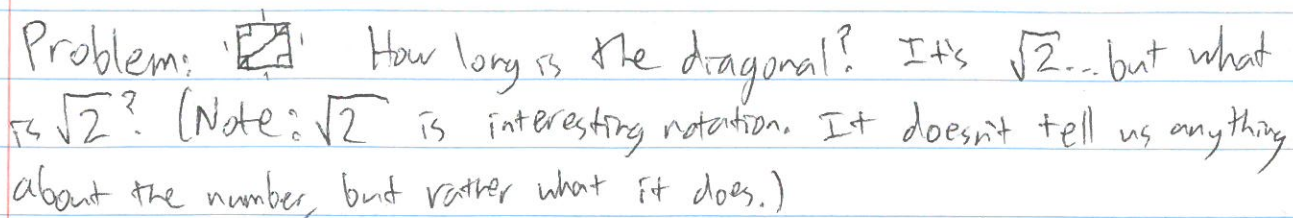 Problem: How long is the diagonal? It's √2... but what
is √2? (Note: √2 is interesting notation. It doesn't tell us anything
about the number, but rather what it does.)